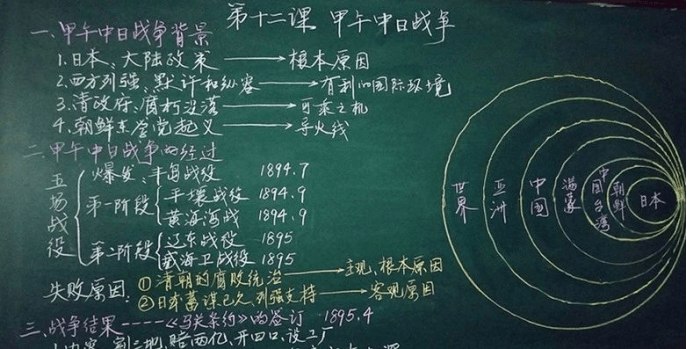 第十二课 甲午中日战争
一、甲午中日战争背景
1.日本、大陆政策 → 根本原因
2.西方列强、默许和纵容 → 有利的国际环境
3.清政府、腐朽没落 → 可乘之机
4.朝鲜东学党起义 → 导火线
二、甲午中日战争的经过
五场战役
爆发:丰岛战役 1894.7
第一阶段 平壤战役 1894.9
黄海海战 1894.9
第二阶段 辽东战役 1895
威海卫战役 1895
失败原因:①清朝的腐败统治 → 主观、根本原因
②日本蓄谋已久,列强支持 → 客观原因
三、战争结果----《马关条约》的签订 1895.4
割三地,赔两亿、开四口、设工厂
世界
亚洲
中国
满蒙
中国台湾
朝鲜
日本